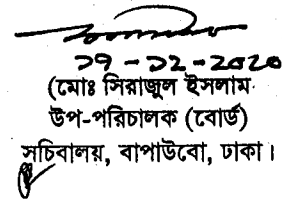 - ১২ - ২০২০
(মোঃ সিরাজুল ইসলাম
উপ-পরিচালক (বোর্ড)
সচিবালয়, বাপাউবো, ঢাকা।